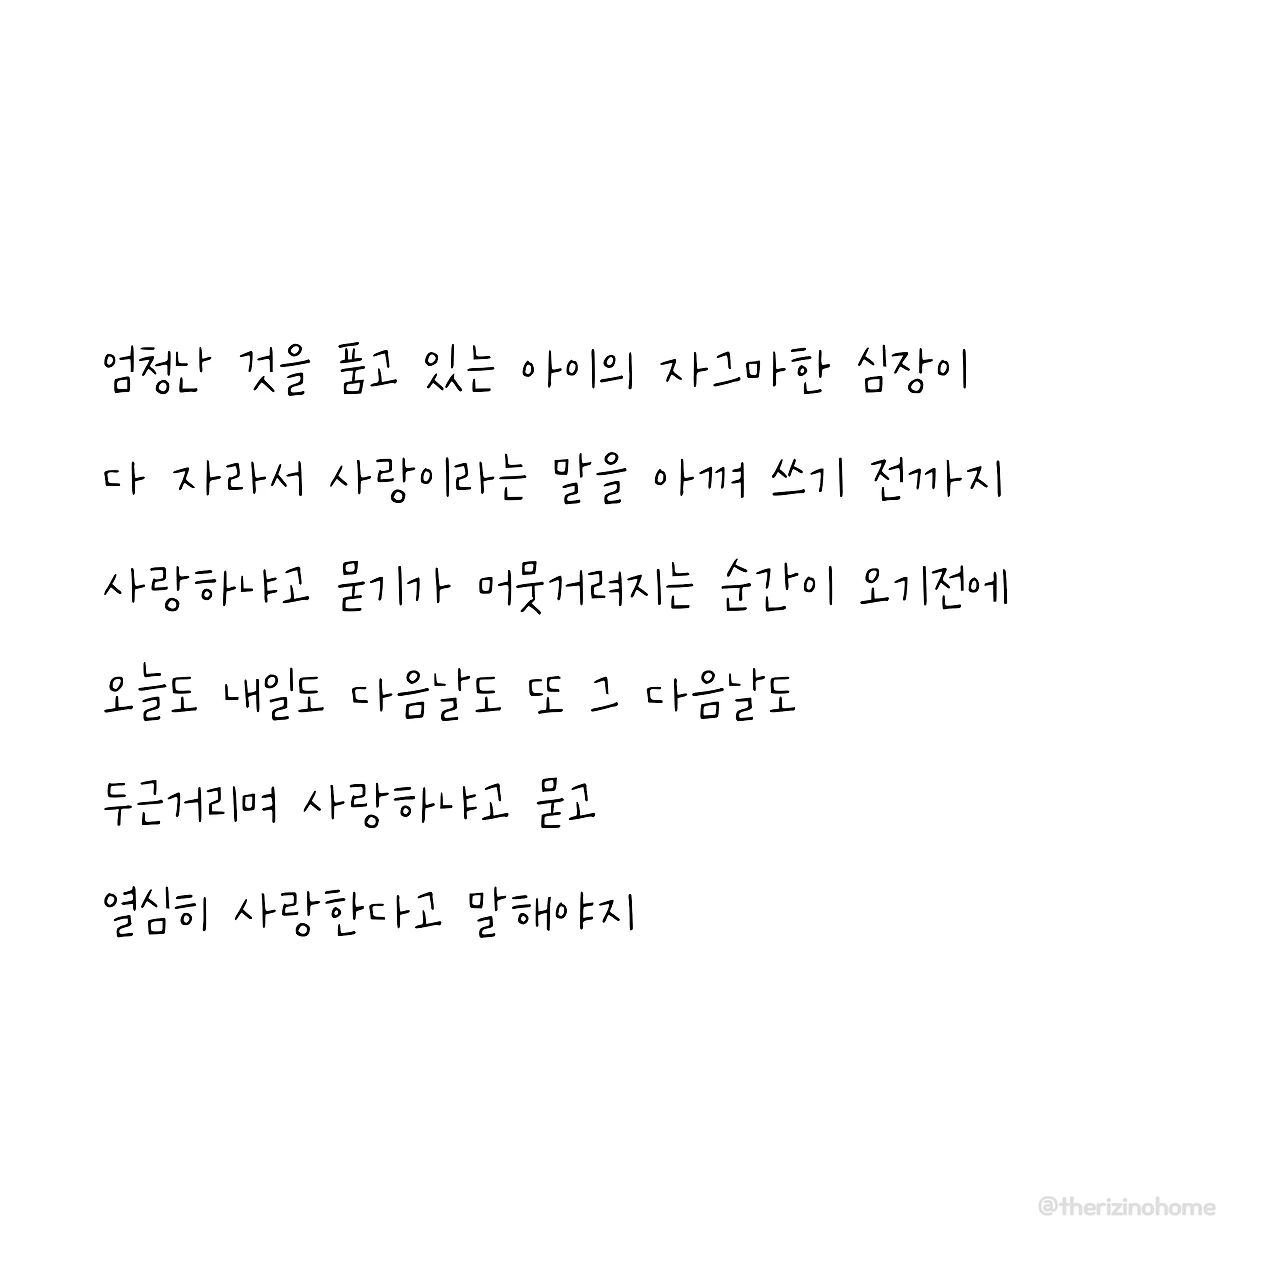 엄청난 것을 품고 있는 아이의 자그마한 심장이
다 자라서 사랑이라는 말을 아껴 쓰기 전까지
사랑하냐고 묻기가 머뭇거려지는 순간이 오기전에
오늘도 내일도 다음날도 또 그 다음날도
두근거리며 사랑하냐고 묻고
열심히 사랑한다고 말해야지
@therizinohome